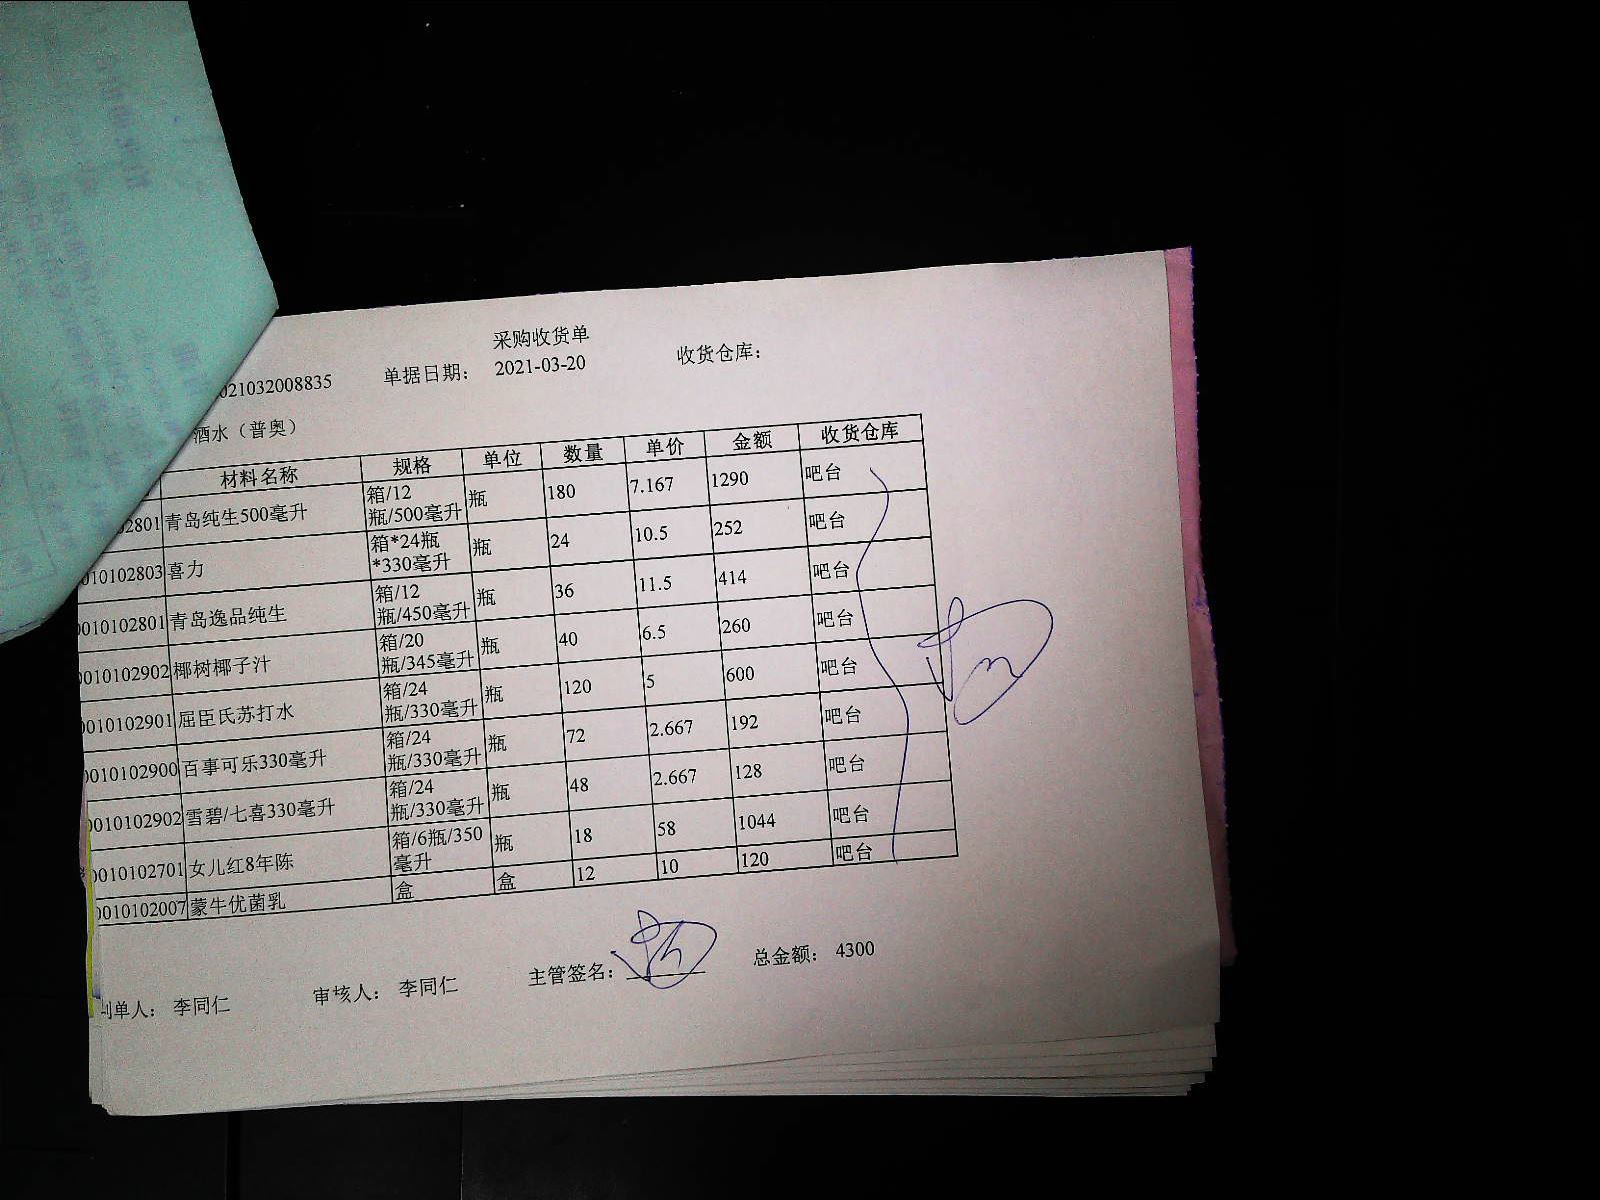 采购收货单
021032008835 单据日期: 2021-03-20 收货仓库:
酒水（普奥）
材料名称 规格 单位 数量 单价 金额 收货仓库
02801 青岛纯生500毫升 箱/12瓶/500毫升 瓶 180 7.167 1290 吧台
010102803 喜力 箱*24瓶*330毫升 瓶 24 10.5 252 吧台
0010102801 青岛逸品纯生 箱/12瓶/450毫升 瓶 36 11.5 414 吧台
0010102902 椰树椰子汁 箱/20瓶/345毫升 瓶 40 6.5 260 吧台
0010102901 屈臣氏苏打水 箱/24瓶/330毫升 瓶 120 5 600 吧台
0010102900 百事可乐330毫升 箱/24瓶/330毫升 瓶 72 2.667 192 吧台
0010102902 雪碧/七喜330毫升 箱/24瓶/330毫升 瓶 48 2.667 128 吧台
0010102701 女儿红8年陈 箱/6瓶/350毫升 瓶 18 58 1044 吧台
0010102007 蒙牛优菌乳 盒 盒 12 10 120 吧台
制单人: 李同仁 审核人: 李同仁 主管签名: 总金额: 4300